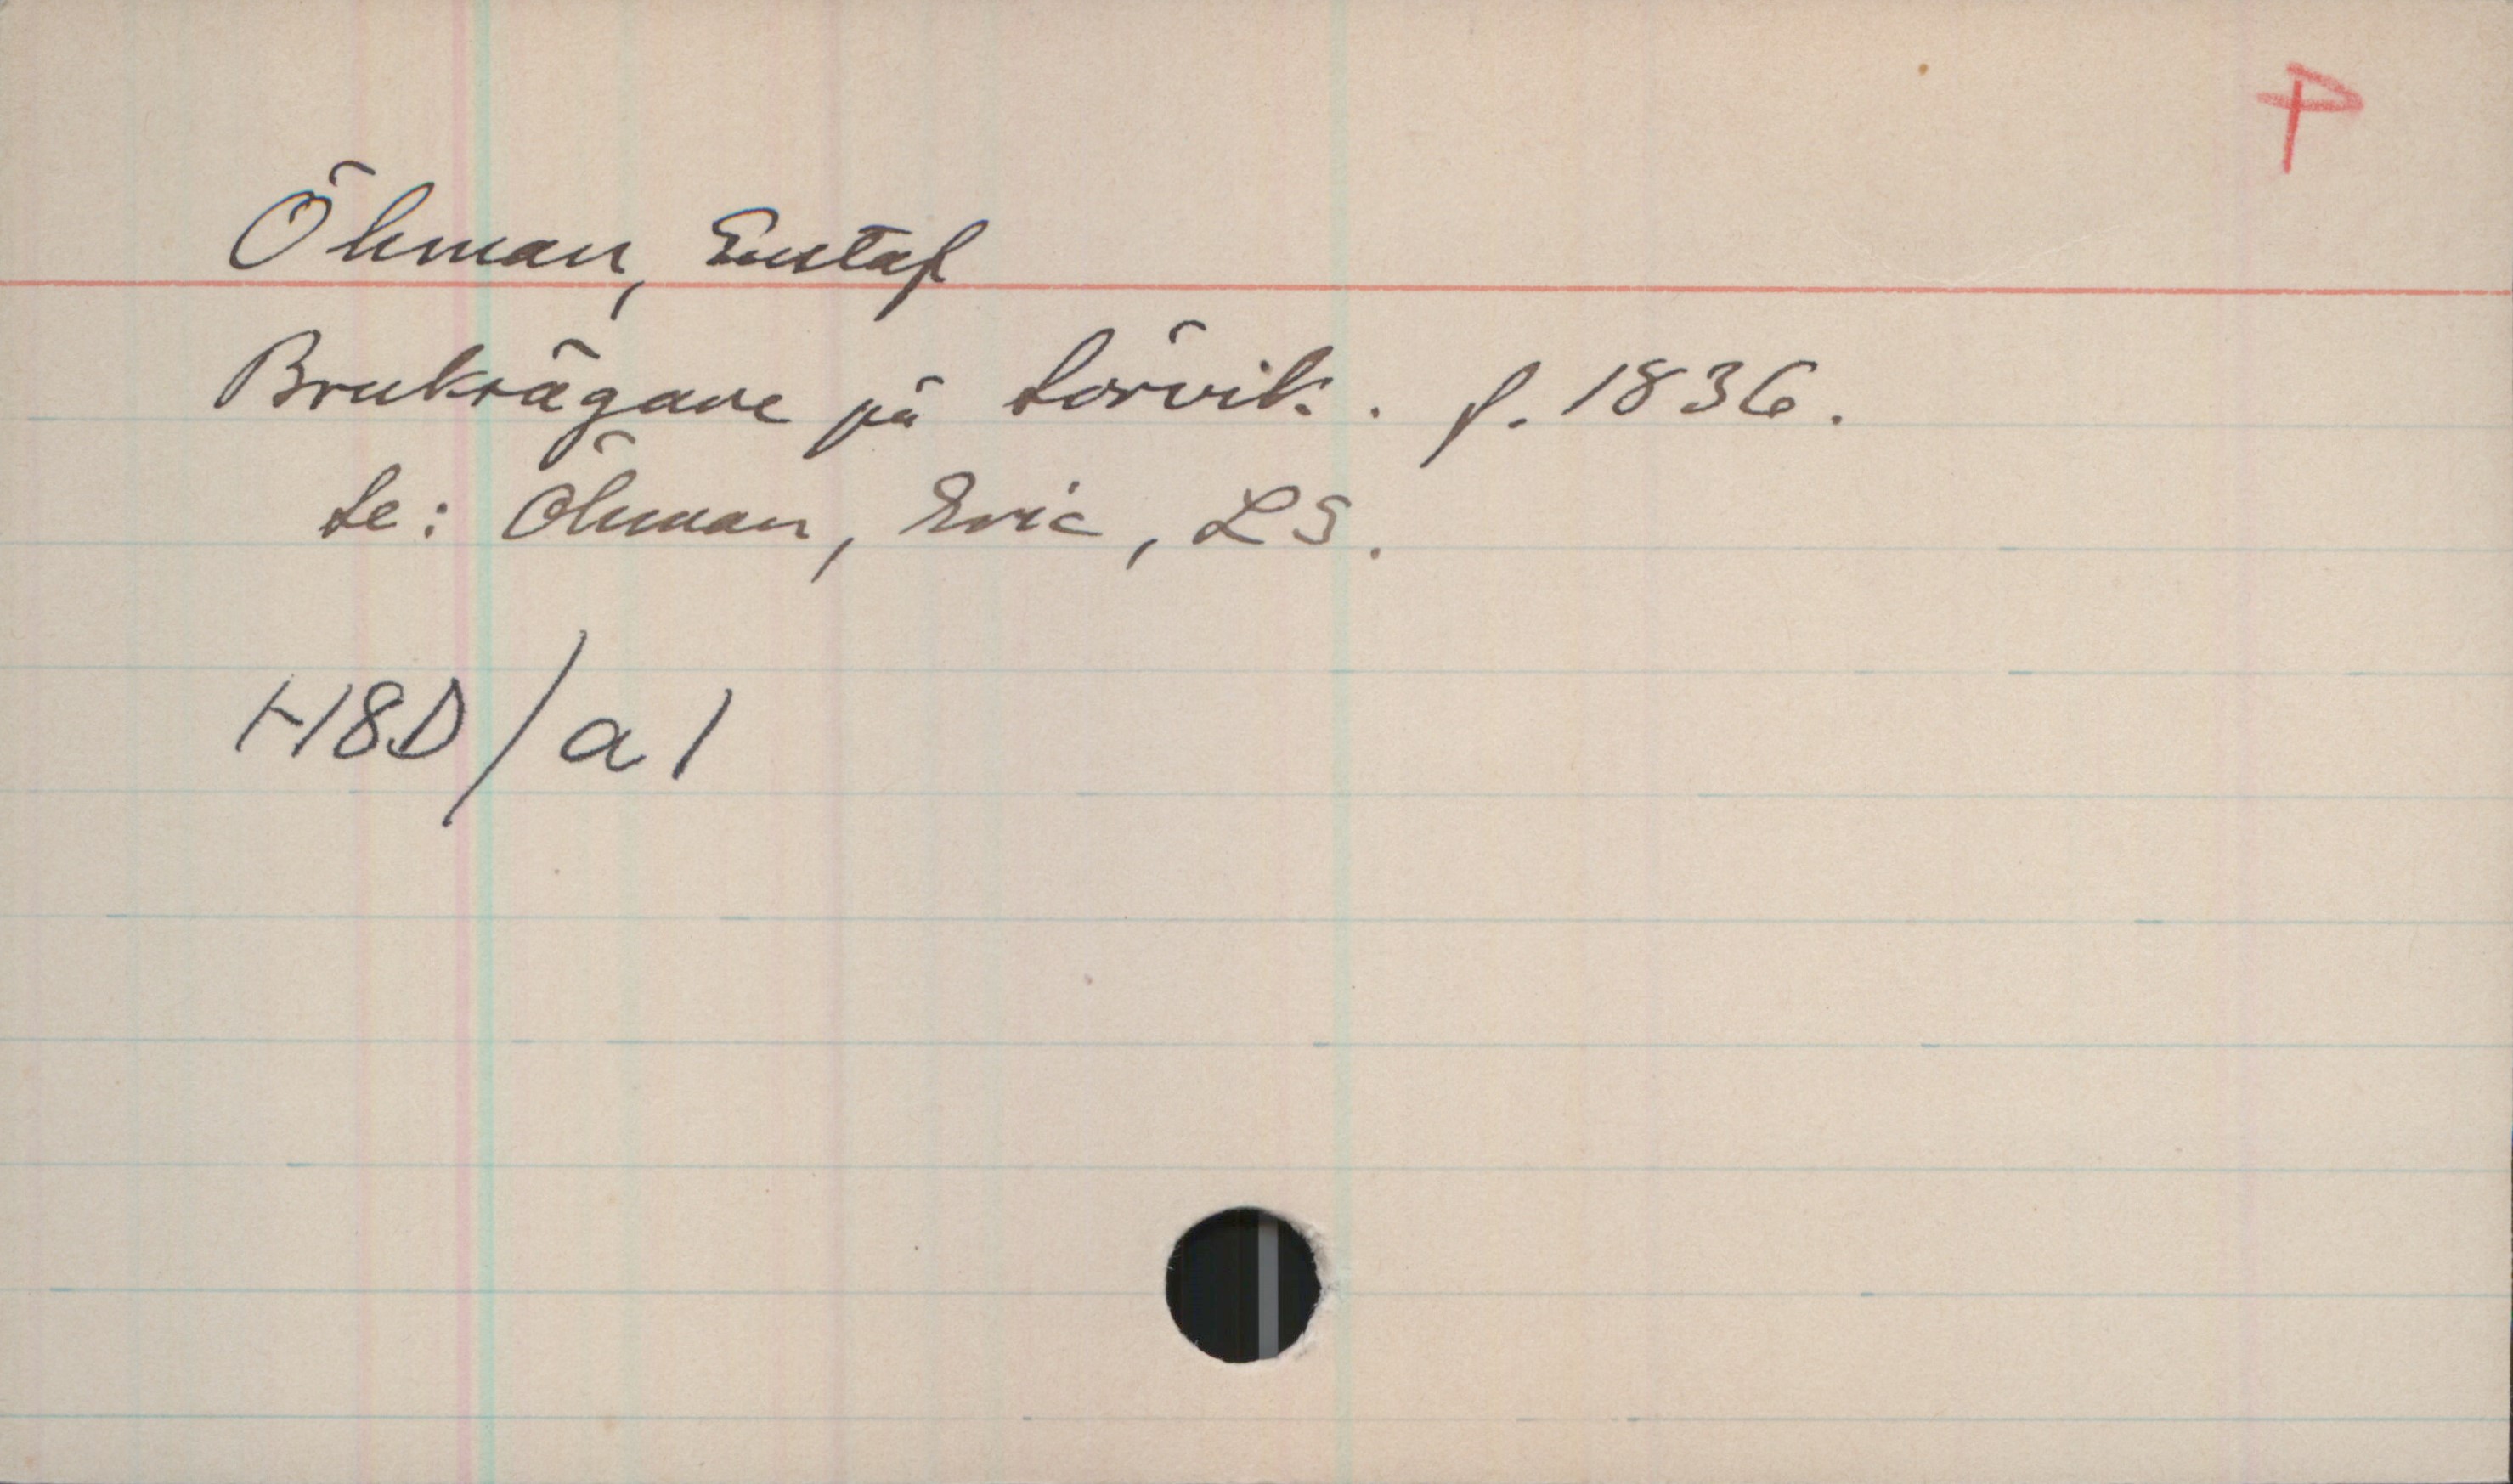 P
Öhman, Gustaf
Bruksägare på Sörvik. f. 1836.
Se: Öhman, Eric, LS.
H8D/a1